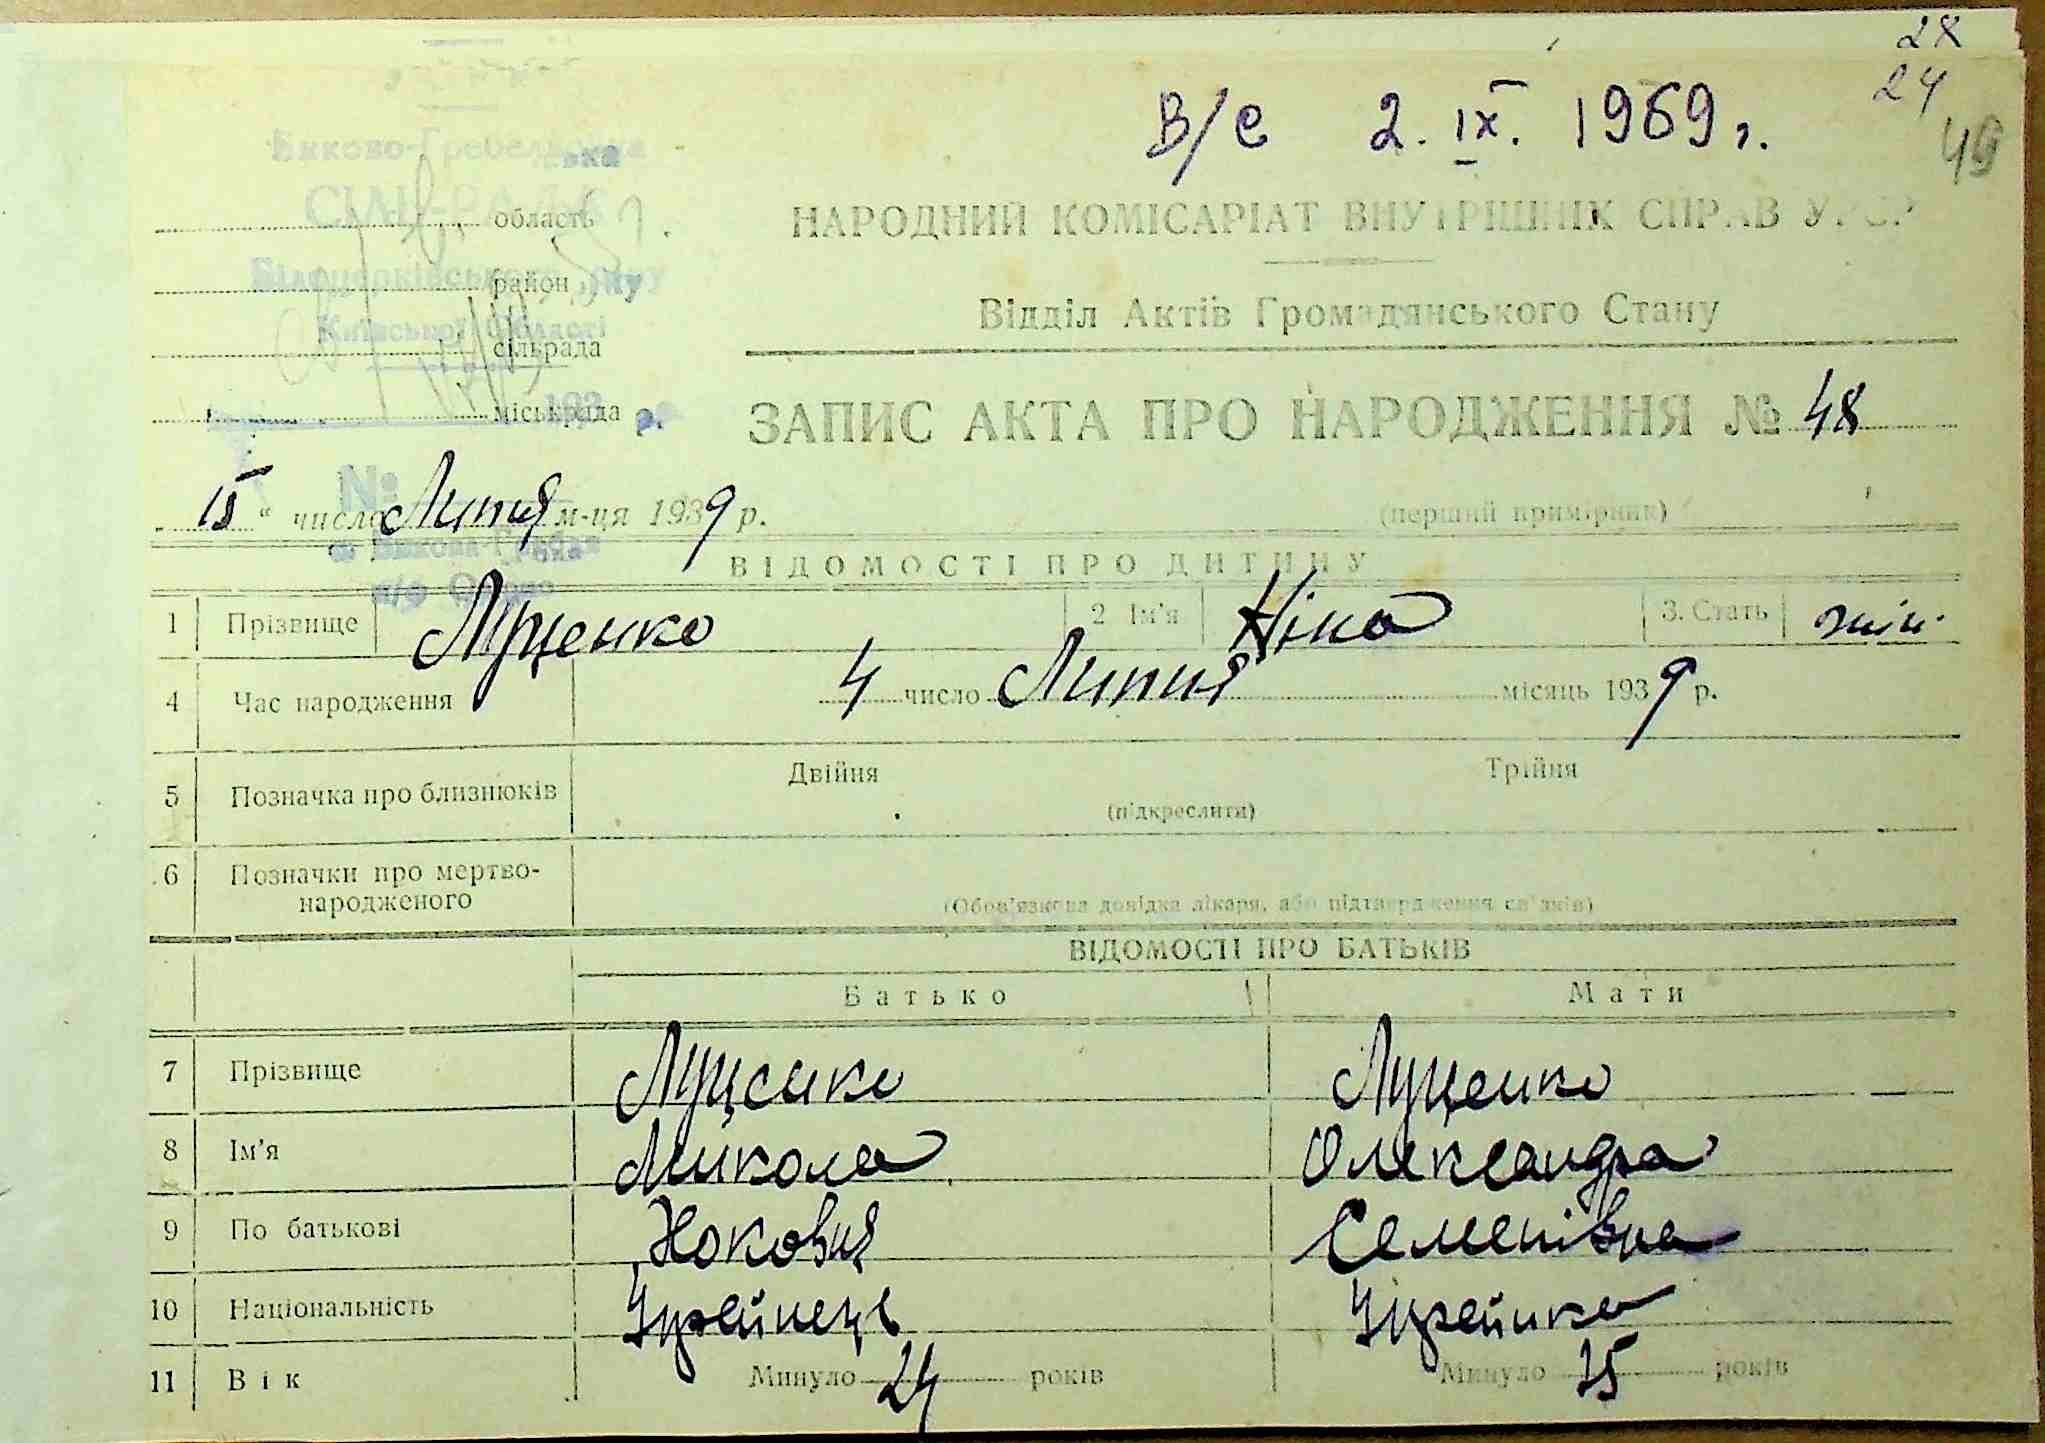 28
24
49
В/с 2. ІХ. 1969 г.
Биково-Гребельська
СІЛЬРАДА
область
Білоцерківського р-ну
район
Київської Області
сільрада
193 р.
міськрада
НАРОДНИЙ КОМІСАРІАТ ВНУТРІШНІХ СПРАВ УРСР
Відділ Актів Громадянського Стану
ЗАПИС АКТА ПРО НАРОДЖЕННЯ № 48
№
„ 15 “ число Липня м-ця 1939 р.
(перший примірник)
ВІДОМОСТІ ПРО ДИТИНУ
1 Прізвище Луценко 2 Ім'я Ніна 3. Стать жін.
4 Час народження 4 число Липня місяць 1939 р.
5 Позначка про близнюків Двійня Трійня
(підкреслити)
6 Позначки про мертво-
народженого
(Обов'язкова довідка лікаря, або підтвердження свідків)
ВІДОМОСТІ ПРО БАТЬКІВ
Батько Мати
7 Прізвище Луценко Луценко
8 Ім'я Микола Олександра
9 По батькові Семенівна
10 Національність Українець Українка
11 Вік Минуло 24 років Минуло 25 років